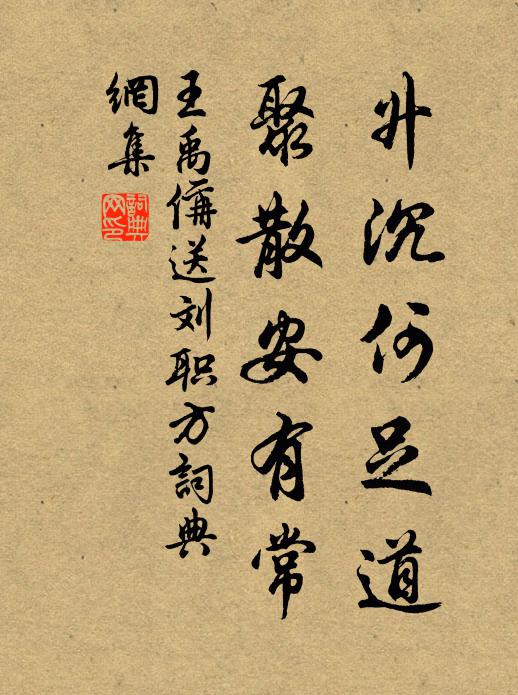 升沉何足道
聚散安有常
王禹偁送刘职方詞典
網集
詞典
网印